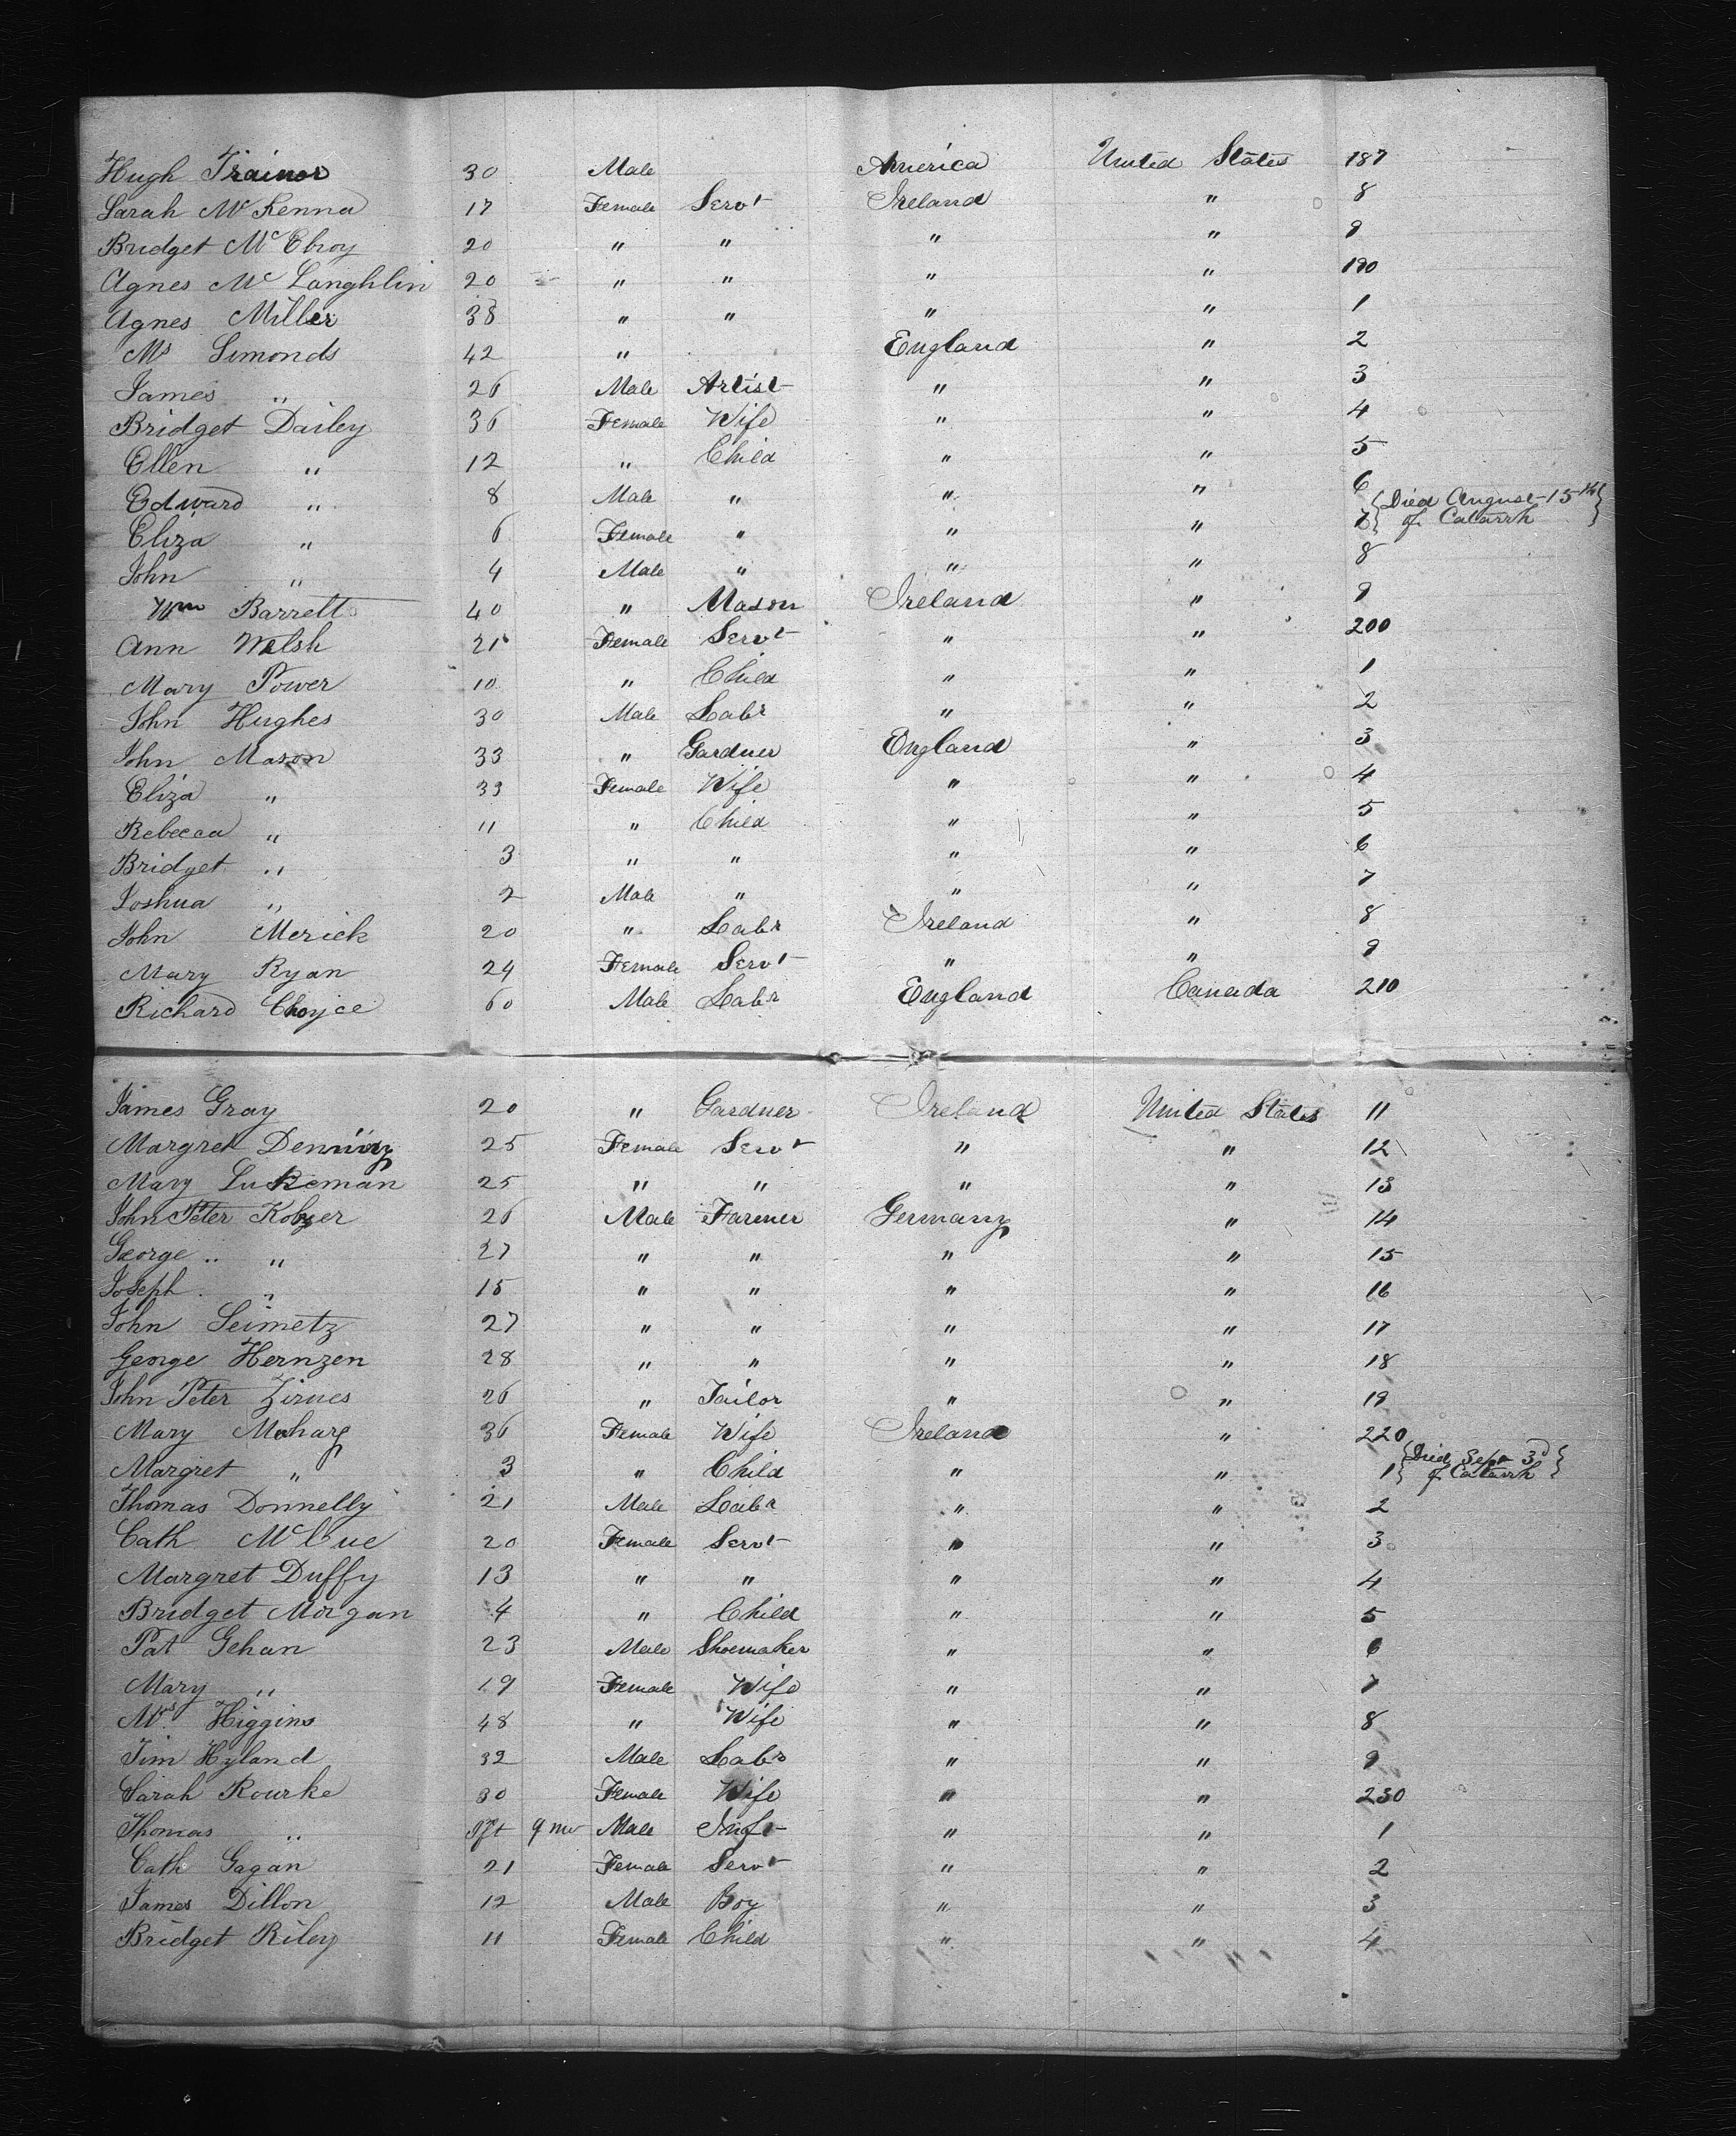 Hugh Trainor 30 Male America United States 187
Sarah McKenna 17 Female Servt Ireland " 8
Bridget McElroy 20 " " " " 9
Agnes McLaughlin 20 " " " " 190
Agnes Miller 38 " " " " 1
Ms Simonds 42 " England " 2
James " 26 Male Artist " " 3
Bridget Dailey 36 Female Wife " " 4
Ellen " 12 " Child " " 5
Edward " 8 Male " " " 6
Eliza " 6 Female " " " 7 {Died August 15th of Catarrh}
John " 4 Male " " " 8
Wm Barrett 40 " Mason Ireland " 9
Ann Welsh 21 Female Servt " " 200
Mary Power 10 " Child " " 1
John Hughes 30 Male Labr " " 2
John Mason 33 " Gardner England " 3
Eliza " 33 Female Wife " " 4
Rebecca " 11 " Child " " 5
Bridget " 3 " " " " 6
Joshua " 2 Male " " " 7
John Merick 20 " Labr Ireland " 8
Mary Ryan 24 Female Servt " " 9
Richard Choyce 60 Male Labr England Canada 210
James Gray 20 " Gardner Ireland United States 11
Margret 25 Female Servt " " 12
Mary Lukeman 25 " " " " 13
John Peter 26 Male Farmer Germany " 14
George " " 27 " " " " 15
Joseph " 15 " " " " 16
John Seimetz 27 " " " " 17
George Hernzen 28 " " " " 18
John Peter Zirves 26 " Tailor " " 19
Mary Moharg 36 Female Wife Ireland " 220
Margret " 3 " Child " " 1 {Died Sept 3d of Catarrh}
Thomas Donnelly 21 Male Labr " " 2
Cath McCue 20 Female Servt " " 3
Margret Duffy 13 " " " " 4
Bridget Morgan 4 " Child " " 5
Pat Gehan 23 Male Shoemaker " " 6
Mary " 19 Female Wife " " 7
Mrs Higgins 48 " Wife " " 8
Jim Hyland 32 Male Labr " " 9
Sarah Rourke 30 Female Wife " " 230
Thomas " 9 mo Male Inft " " 1
Cath Gagan 21 Female Servt " " 2
James Dillon 12 Male Boy " " 3
Bridget Riley 11 Female Child " " 4